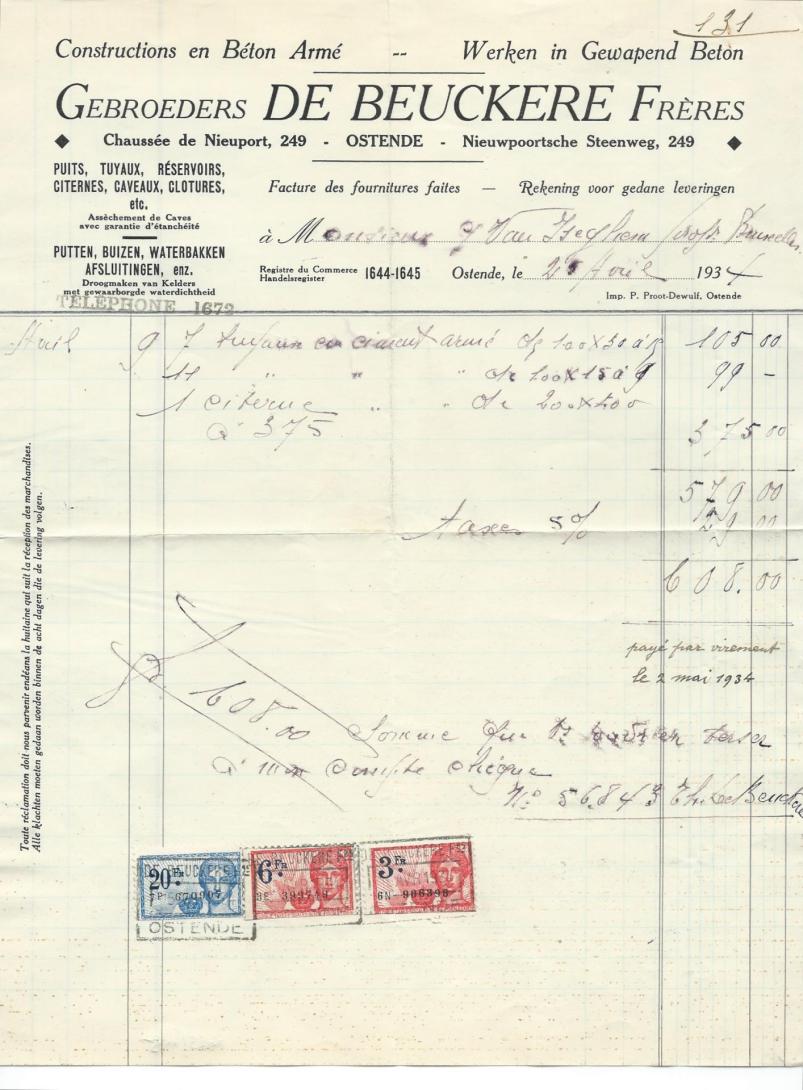 131
Constructions en Béton Armé -- Werken in Gewapend Beton
GEBROEDERS DE BEUCKERE FRÈRES
Chaussée de Nieuport, 249 - OSTENDE - Nieuwpoortsche Steenweg, 249
PUITS, TUYAUX, RÉSERVOIRS,
CITERNES, CAVEAUX, CLOTURES,
etc.
Assèchement de Caves
avec garantie d'étanchéité
PUTTEN, BUIZEN, WATERBAKKEN
AFSLUITINGEN, enz.
Droogmaken van Kelders
met gewaarborgde waterdichtheid
TELEPHONE 1672
Facture des fournitures faites — Rekening voor gedane leveringen
à Monsieur Van Iseghem Bruxelles
Registre du Commerce
Handelsregister
1644-1645
Ostende, le Avril 1934
Imp. P. Proot-Dewulf, Ostende
Avril 9 7 tuyaux en ciment armé de 100x50 à 15 105 00
11 " " " de 100x15 à 9 99 -
1 citerne " " de 200x200
à 375 375 00
579 00
taxes 5% 29 00
608.00
payé par virement
le 2 mai 1934
608.00 Somme que verser
à mon compte chèque
N° 56.843 De Beuckere
Toute réclamation doit nous parvenir endéans la huitaine qui suit la réception des marchandises.
Alle klachten moeten gedaan worden binnen de acht dagen die de levering volgen.
DE BEUCKERE
20 Fr
6 Fr
3 Fr
OSTENDE